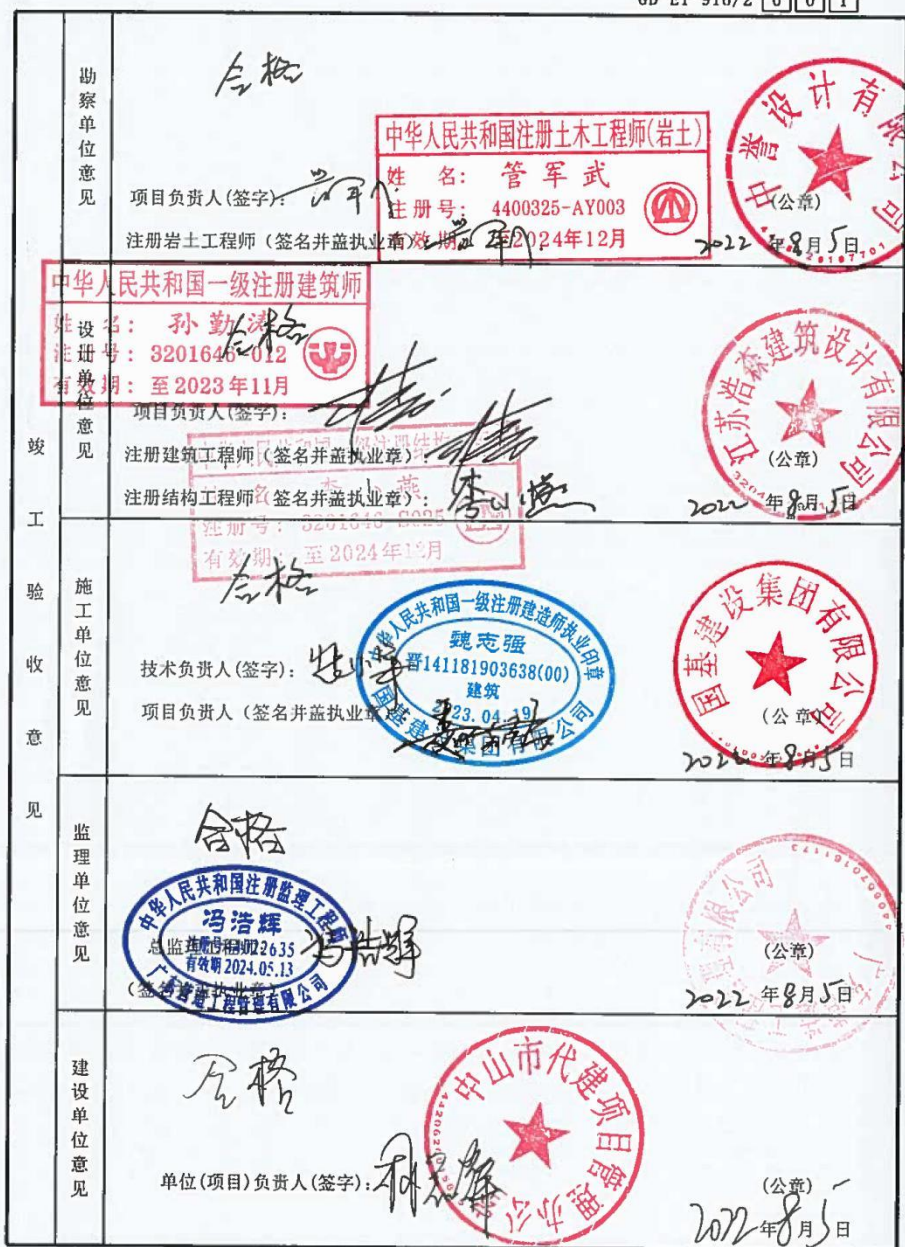 GD-E1-916/2 0 0 1
竣工验收意见
勘察单位意见
合格
中华人民共和国注册土木工程师(岩土)
姓 名: 管军武
注册号: 4400325-AY003
有效期: 至2024年12月
项目负责人(签字):
注册岩土工程师（签名并盖执业章）:
中誉设计有限公司
(公章)
2022年8月5日
设计单位意见
中华人民共和国一级注册建筑师
姓 名: 孙勤涛
注册号: 3201646-012
有效期: 至2023年11月
合格
项目负责人(签字):
注册建筑工程师（签名并盖执业章）:
注册结构工程师（签名并盖执业章）: 李小燕
注册号: 3201646-S025
有效期: 至2024年12月
江苏浩森建筑设计有限公司
(公章)
2022年8月5日
施工单位意见
合格
技术负责人(签字):
项目负责人（签名并盖执业章）
中华人民共和国一级注册建造师执业印章
魏志强
晋141181903638(00)
建筑
2023.04.19
国基建设集团有限公司
国基建设集团有限公司
(公章)
2022年8月5日
监理单位意见
合格
中华人民共和国注册监理工程师
冯浩辉
有效期 2024.05.13
总监理工程师: 冯浩辉
(签名并盖执业章)
(公章)
2022年8月5日
建设单位意见
合格
单位(项目)负责人(签字):
中山市代建项目管理办公室
(公章)
2022年8月5日